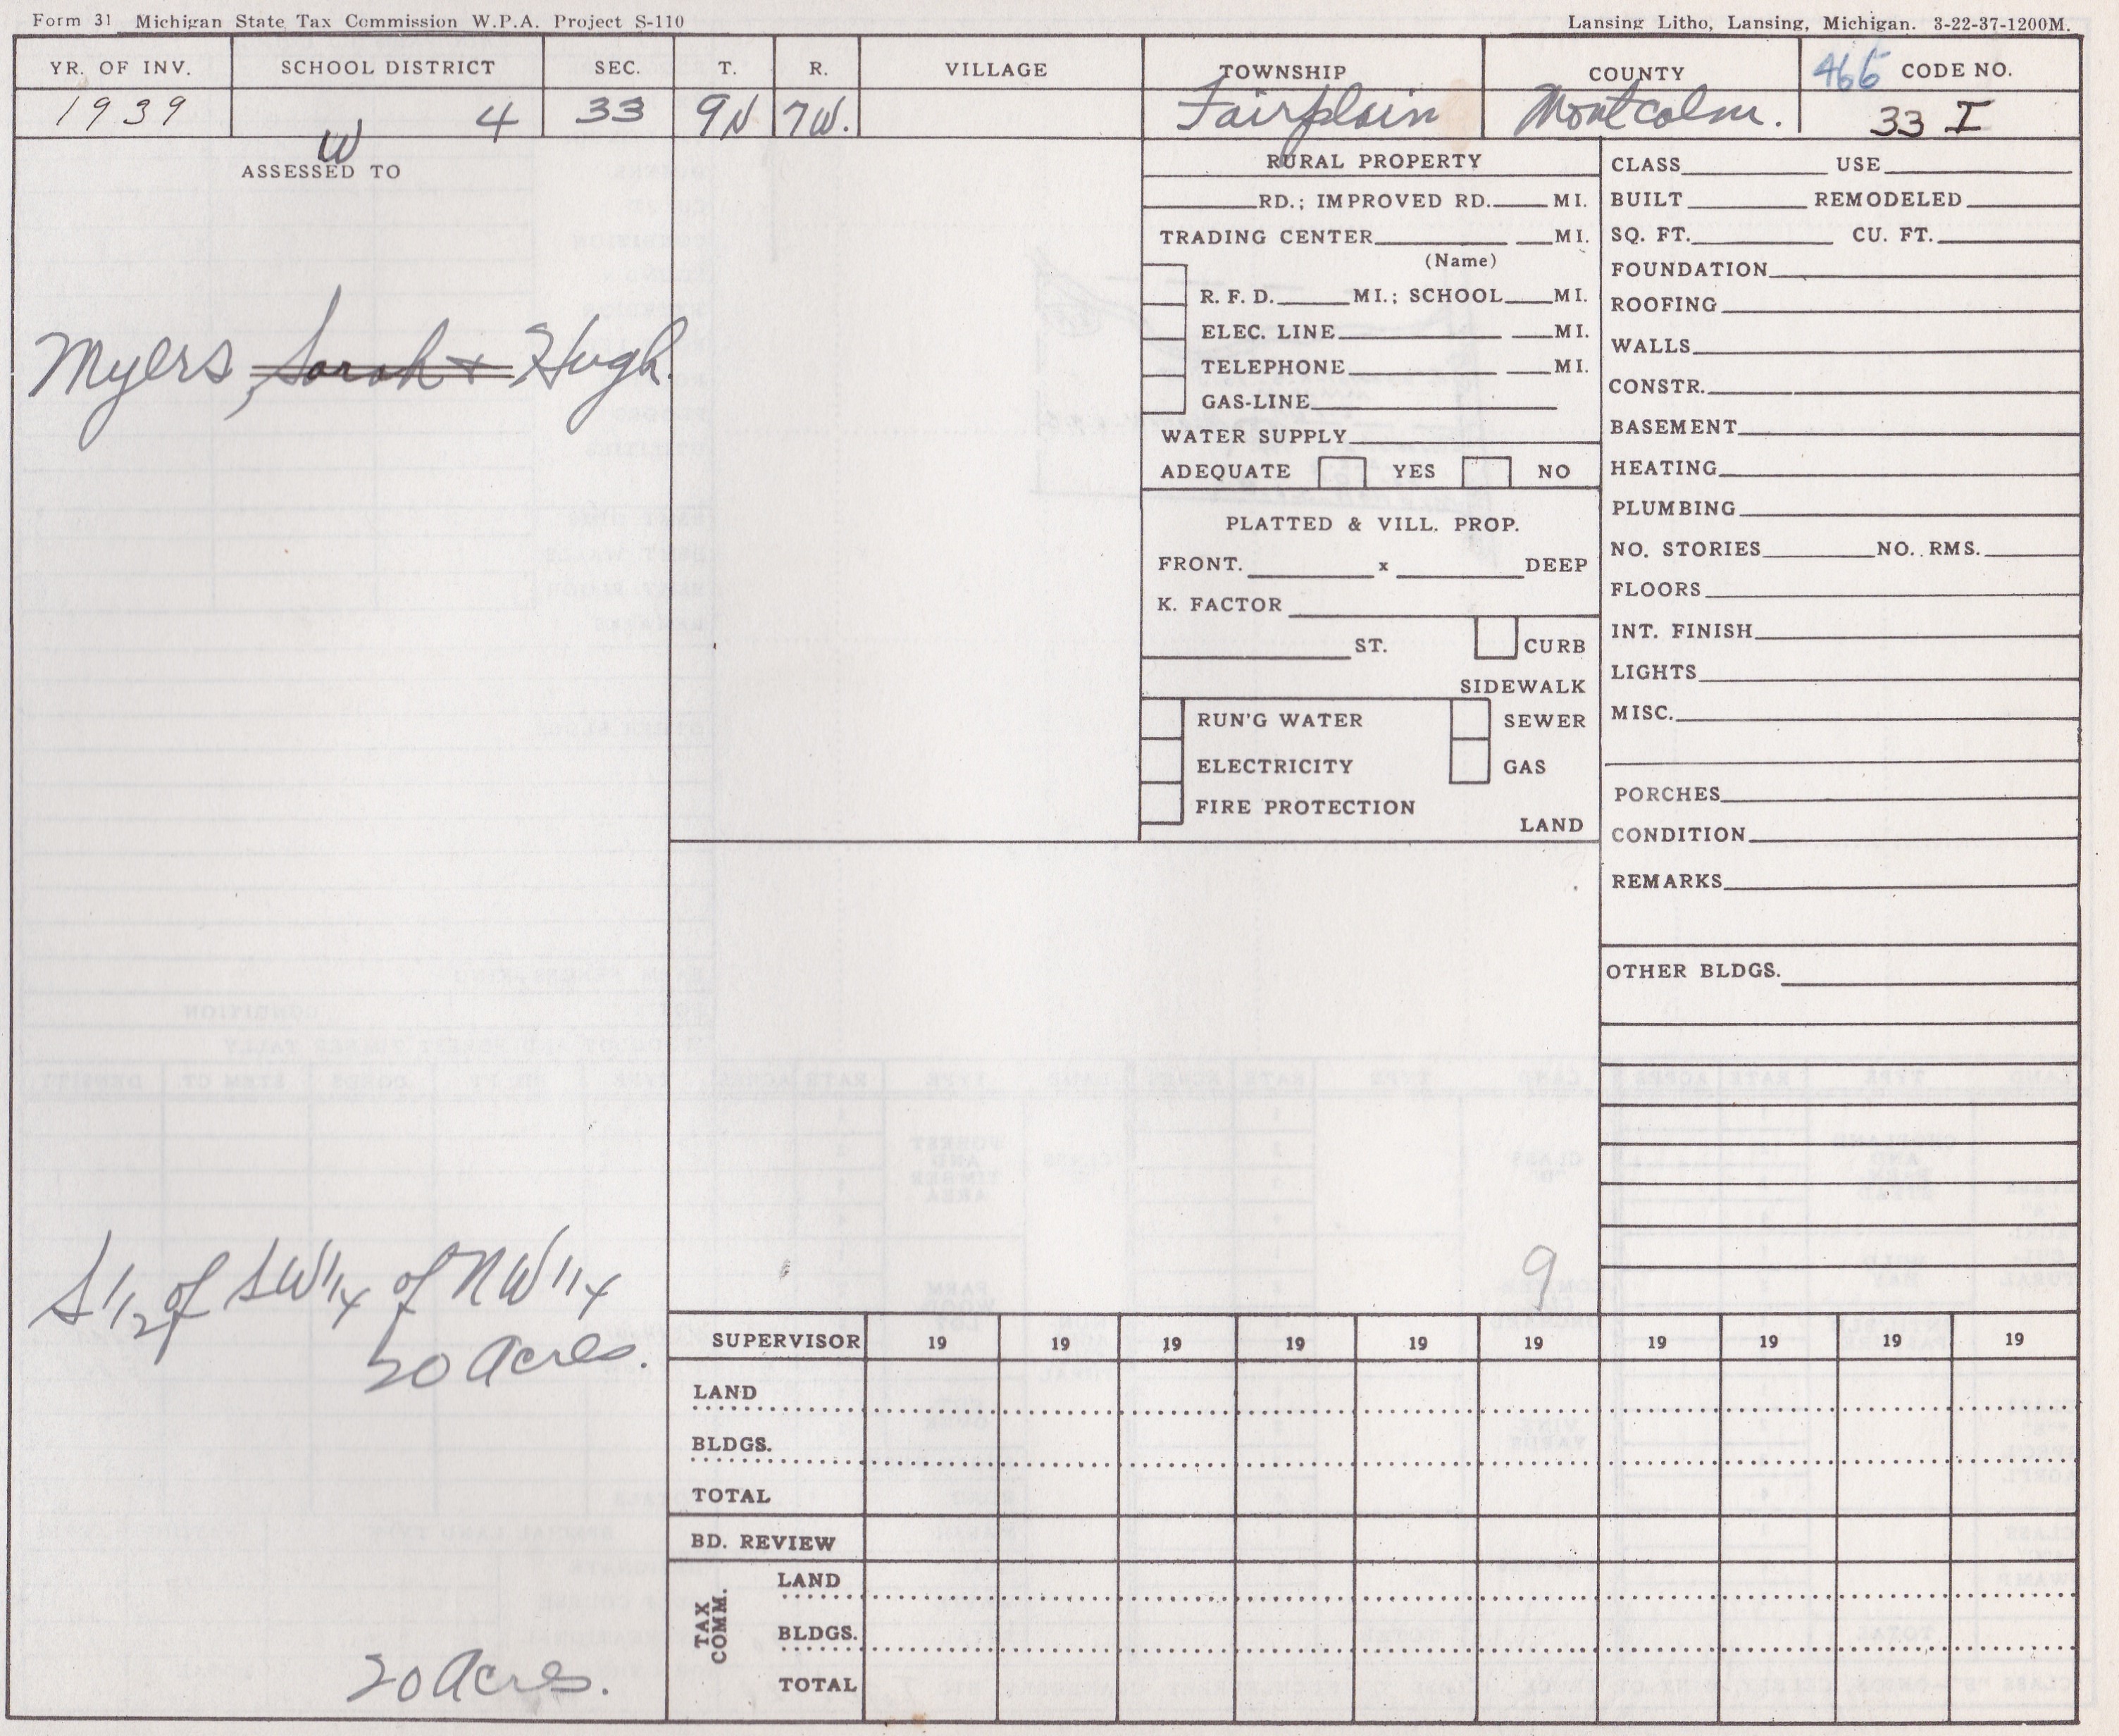 Form 31 Michigan State Tax Commission W.P.A. Project S-110
Lansing Litho, Lansing, Michigan. 3-22-37-1200M.
YR. OF INV. SCHOOL DISTRICT SEC. T. R. VILLAGE TOWNSHIP COUNTY 466 CODE NO.
1939 4 33 9N 7W. Fairplain Montcalm. 33 I
W
ASSESSED TO
Myers, Sarah + Hugh.
S 1/2 of SW 1/4 of NW 1/4
20 Acres.
20 Acres.
RURAL PROPERTY
RD.; IMPROVED RD. MI.
TRADING CENTER MI.
(Name)
R. F. D. MI.; SCHOOL MI.
ELEC. LINE MI.
TELEPHONE MI.
GAS-LINE
WATER SUPPLY
ADEQUATE YES NO
PLATTED & VILL. PROP.
FRONT. x DEEP
K. FACTOR
ST. CURB
SIDEWALK
RUN'G WATER SEWER
ELECTRICITY GAS
FIRE PROTECTION
LAND
9
CLASS USE
BUILT REMODELED
SQ. FT. CU. FT.
FOUNDATION
ROOFING
WALLS
CONSTR.
BASEMENT
HEATING
PLUMBING
NO. STORIES NO. RMS.
FLOORS
INT. FINISH
LIGHTS
MISC.
PORCHES
CONDITION
REMARKS
OTHER BLDGS.
SUPERVISOR 19 19 19 19 19 19 19 19 19 19
LAND
BLDGS.
TOTAL
BD. REVIEW
TAX COMM.
LAND
BLDGS.
TOTAL